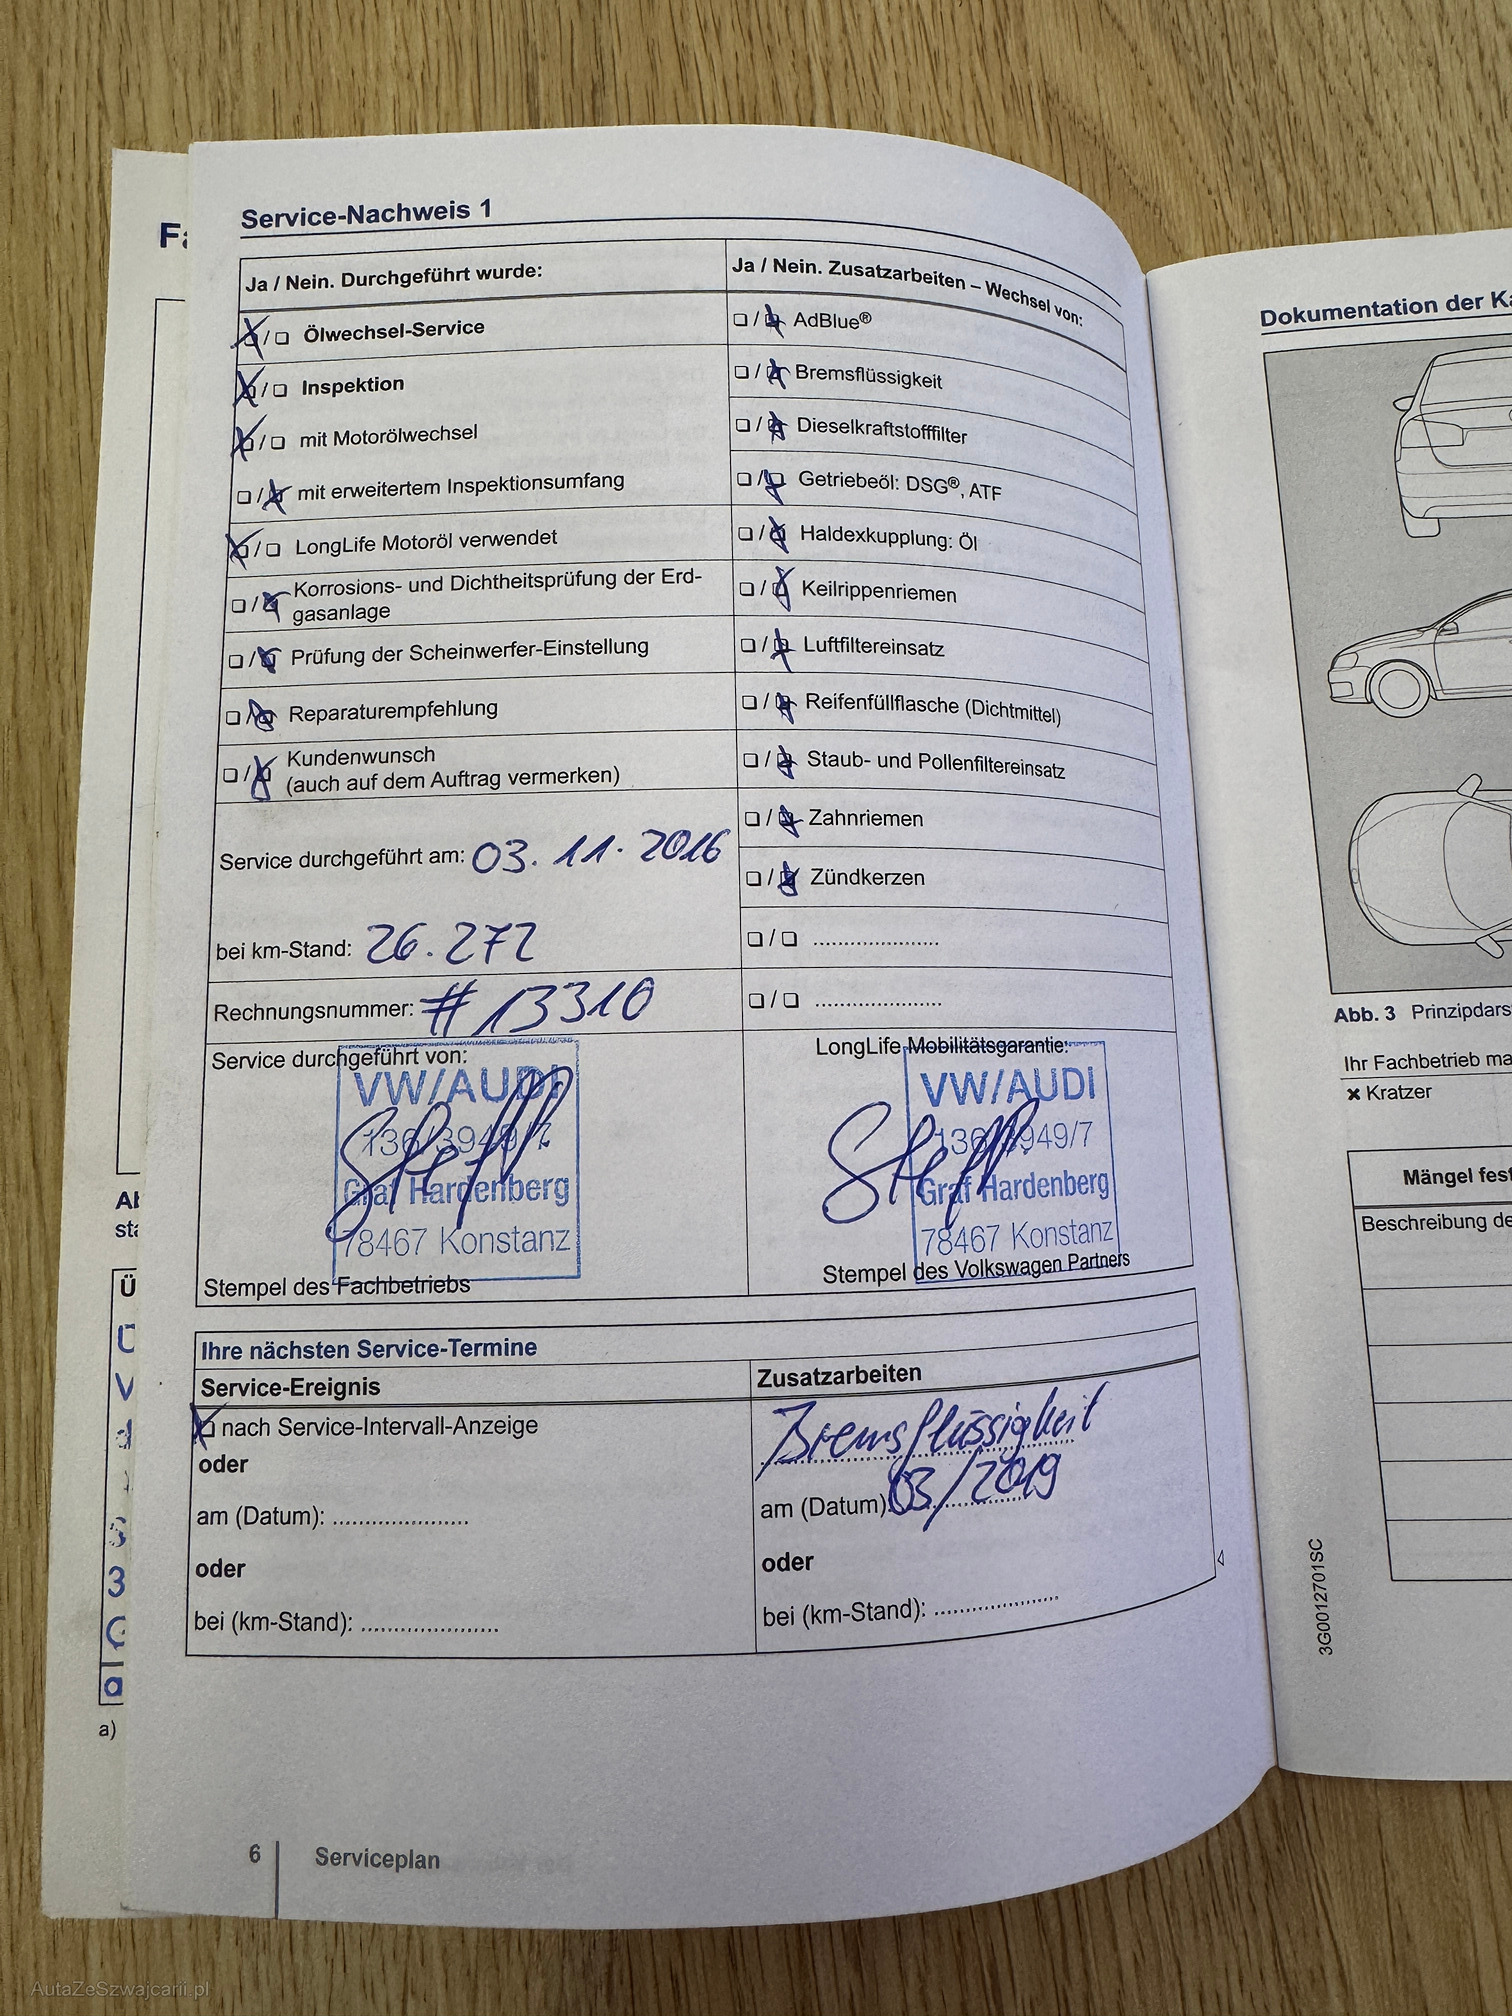 Service-Nachweis 1
Ja / Nein. Durchgeführt wurde:
Ölwechsel-Service
Inspektion
mit Motorölwechsel
mit erweitertem Inspektionsumfang
LongLife Motoröl verwendet
Korrosions- und Dichtheitsprüfung der Erd-
gasanlage
Prüfung der Scheinwerfer-Einstellung
Reparaturempfehlung
Kundenwunsch
(auch auf dem Auftrag vermerken)
Service durchgeführt am: 03.11.2016
bei km-Stand: 26.272
Rechnungsnummer: #13310
Service durchgeführt von:
VW/AUDI
Graf Hardenberg
78467 Konstanz
Stempel des Fachbetriebs
Ja / Nein. Zusatzarbeiten – Wechsel von:
AdBlue®
Bremsflüssigkeit
Dieselkraftstofffilter
Getriebeöl: DSG®, ATF
Haldexkupplung: Öl
Keilrippenriemen
Luftfiltereinsatz
Reifenfüllflasche (Dichtmittel)
Staub- und Pollenfiltereinsatz
Zahnriemen
Zündkerzen
LongLife Mobilitätsgarantie:
VW/AUDI
Graf Hardenberg
78467 Konstanz
Stempel des Volkswagen Partners
Ihre nächsten Service-Termine
Service-Ereignis
nach Service-Intervall-Anzeige
oder
am (Datum):
oder
bei (km-Stand):
Zusatzarbeiten
Bremsflüssigkeit
am (Datum): 03/2019
oder
bei (km-Stand):
6 Serviceplan
Dokumentation der
Abb. 3
Ihr Fachbetrieb
Kratzer
Mängel
Beschreibung
3G0012701SC
a)
AutaZeSzwajcarii.pl